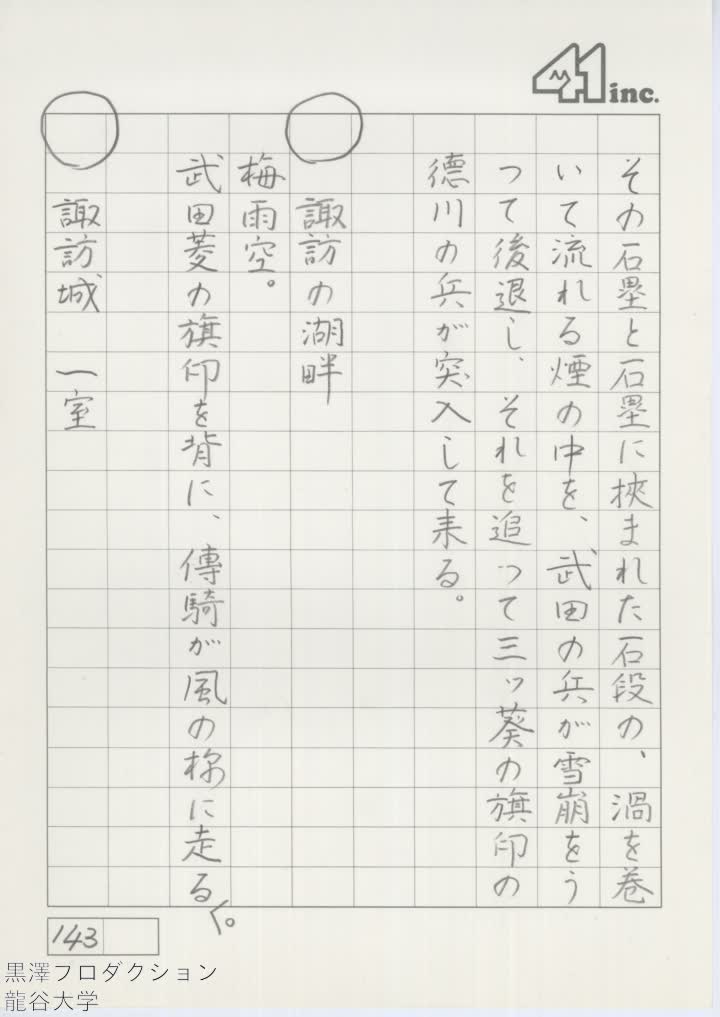 41 inc.
その石塁と石塁に挾まれた石段の、渦を巻
いて流れる煙の中を、武田の兵が雪崩をう
つて後退し、それを追つて三ッ葵の旗印の
徳川の兵が突入して来る。
諏訪の湖畔
梅雨空。
武田菱の旗印を背に、傳騎が風の様に走る。
諏訪城 一室
143
黒澤プロダクション
龍谷大学